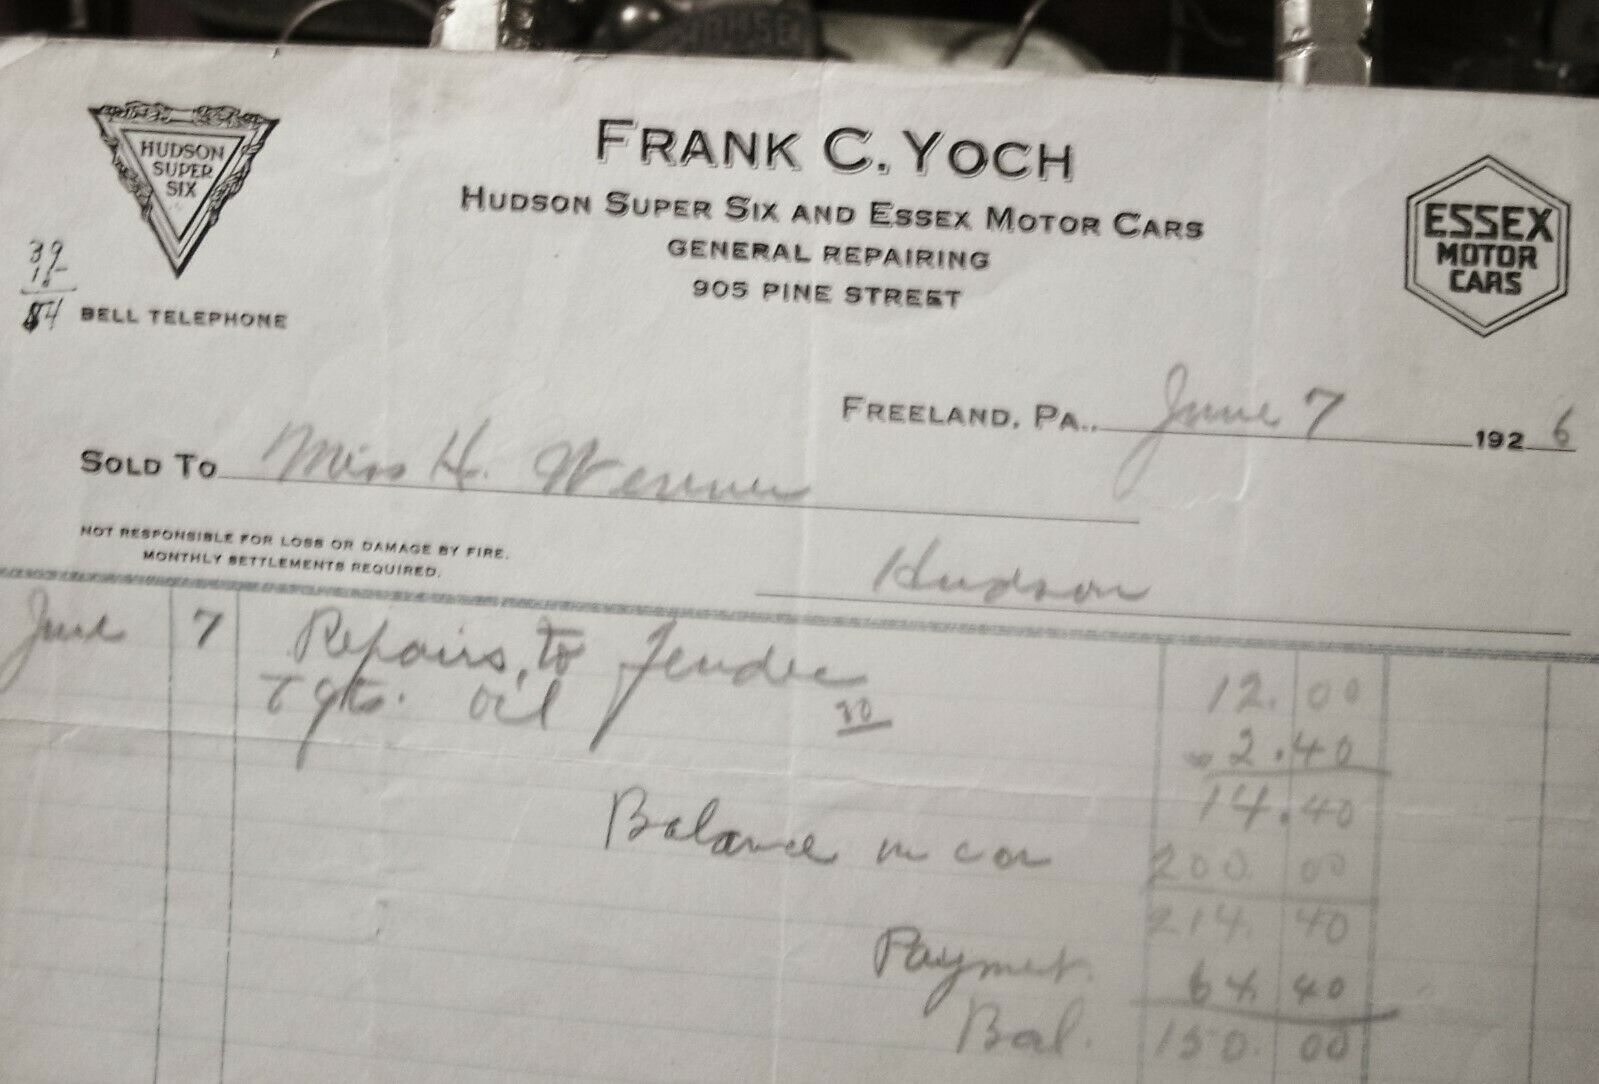 HUDSON
SUPER
SIX
FRANK C. YOCH
HUDSON SUPER SIX AND ESSEX MOTOR CARS
GENERAL REPAIRING
905 PINE STREET
ESSEX
MOTOR
CARS
39
BELL TELEPHONE
FREELAND, PA., June 7 1926
SOLD TO Miss H.
NOT RESPONSIBLE FOR LOSS OR DAMAGE BY FIRE.
MONTHLY SETTLEMENTS REQUIRED.
Hudson
June 7 Repairs to Fender 12.00
qts. oil 30 2.40
14.40
Balance on car 200.00
214.40
Payment. 64.40
Bal. 150.00